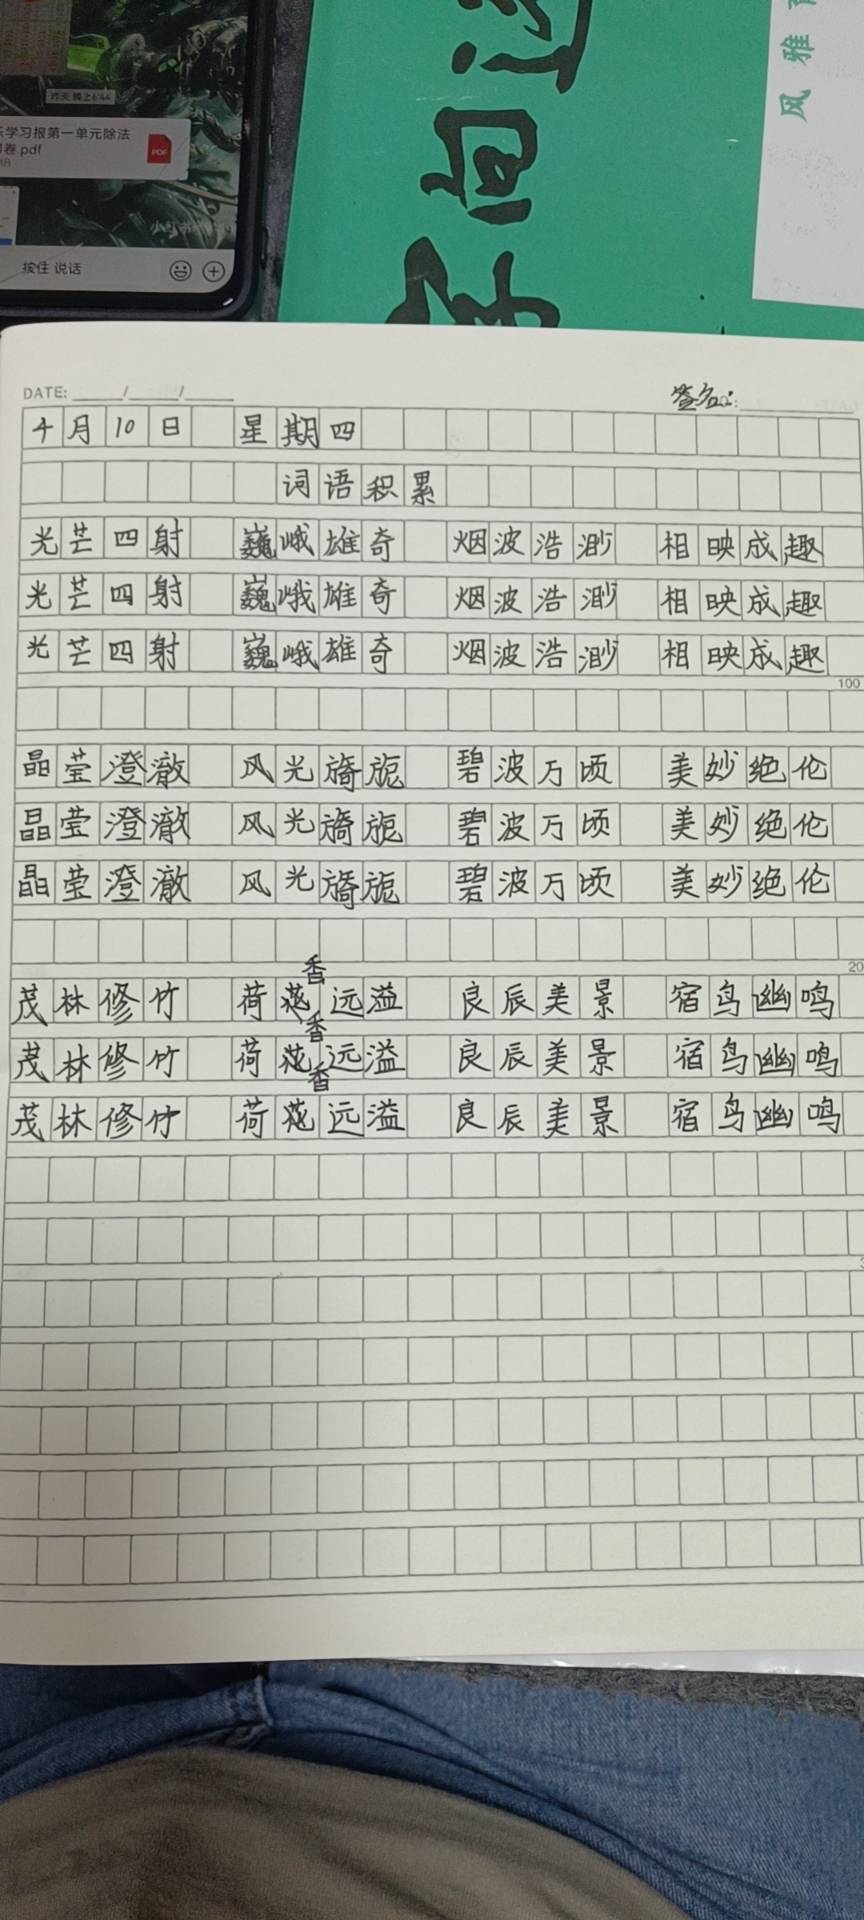 昨天 晚上6:44
乐学习报第一单元除法
卷.pdf
PDF
MB
小红书
按住 说话
字向边
风雅
DATE: ____/____/____
签名:
4月10日 星期四
词语积累
光芒四射 巍峨雄奇 烟波浩渺 相映成趣
光芒四射 巍峨雄奇 烟波浩渺 相映成趣
光芒四射 巍峨雄奇 烟波浩渺 相映成趣
100
晶莹澄澈 风光旖旎 碧波万顷 美妙绝伦
晶莹澄澈 风光旖旎 碧波万顷 美妙绝伦
晶莹澄澈 风光旖旎 碧波万顷 美妙绝伦
20
香
茂林修竹 荷花远溢 良辰美景 宿鸟幽鸣
香
茂林修竹 荷花远溢 良辰美景 宿鸟幽鸣
香
茂林修竹 荷花远溢 良辰美景 宿鸟幽鸣